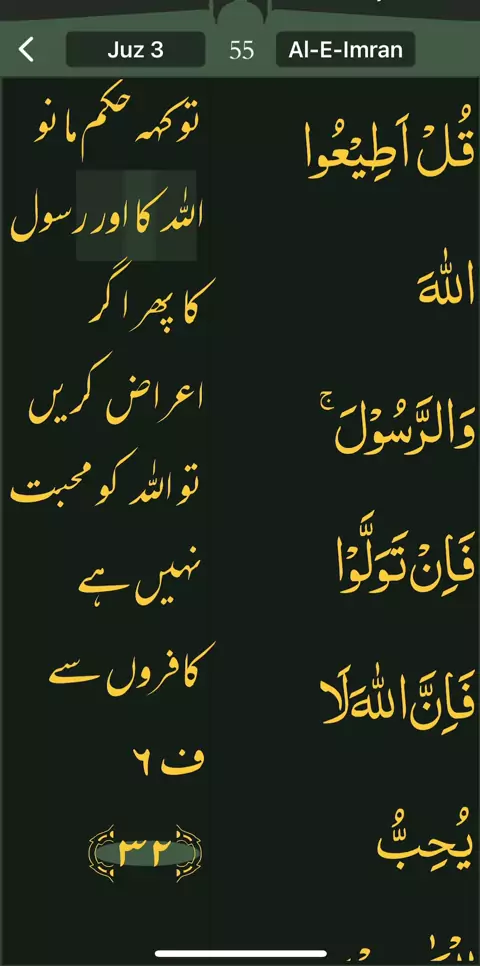 Juz 3 55 Al-E-Imran
قُلْ اَطِيْعُوا
اللّٰهَ
وَالرَّسُوْلَ ۚ
فَاِنْ تَوَلَّوْا
فَاِنَّ اللّٰهَ لَا
يُحِبُّ
تو کہہ حکم مانو
اللہ کا اور رسول
کا پھر اگر
اعراض کریں
تو اللہ کو محبت
نہیں ہے
کافروں سے
ف ۶
۳۲